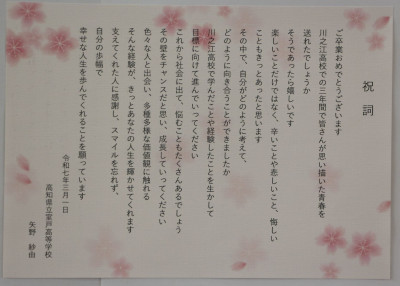 祝詞
ご卒業おめでとうございます
川之江高校での三年間で皆さんが思い描いた青春を
送れたでしょうか
そうであったら嬉しいです
楽しいことだけではなく、辛いことや悲しいこと、悔しい
こともきっとあったと思います
その中で、自分がどのように考えて、
どのように向き合うことができましたか
川之江高校で学んだことや経験したことを生かして
目標に向けて進んでいってください
これから社会に出て、悩むこともたくさんあるでしょう
その壁をチャンスだと思い、成長していってください
色々な人と出会い、多種多様な価値観に触れる
そんな経験が、きっとあなたの人生を輝かせてくれます
支えてくれた人に感謝し、スマイルを忘れず、
自分の歩幅で
幸せな人生を歩んでくれることを願っています
令和七年三月一日
高知県立室戸高等学校
矢野 紗由